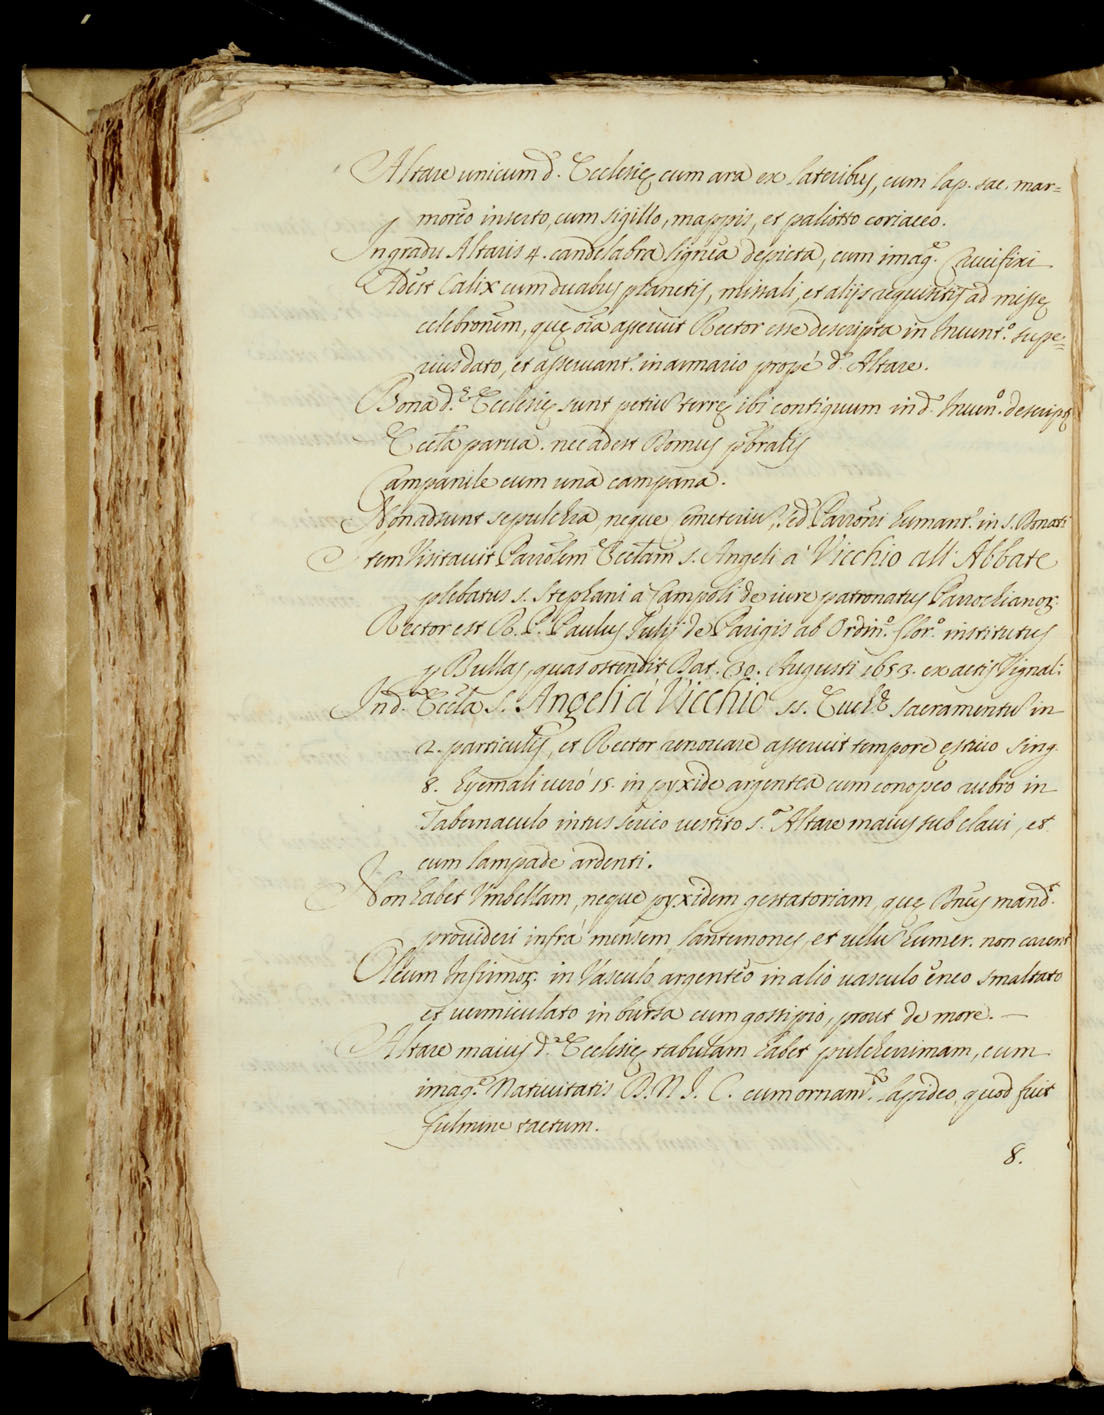 Altare unicum d. Ecclesię cum ara ex lateribus, cum lap. sac. mar=
moreo inserto, cum sigillo, mappis, et paliotto coriaceo.
In gradu Altaris 4. candelabra lignea depicta, cum imag.e Crucifixi
Adest Calix cum duabus planetis, missali, et alijs requisitis ad missę
celebronem, quę oia asseruit Rector esse descripta in Inuent.o supe=
rius dato, et asseruant.r in armario propè d.o Altare.
Bona d.e Ecclesię sunt petiu terrę ibi contiguum in d.o Inuen.o descript
Eccla parua. nec adest Domus pbralis
Campanile cum una campana.
Non adsunt sepulchra, neque cemeteriu, sed Parroni humant.r in S. Donati
Item Visitauit Parrolem Ecclam S. Angeli à Vicchio all' Abbate
plebatus S. Stephani à Campoli de iure patronatus Parrochianor.
Rector est R. P. Paulus Julij de Parigis ab Ordin.o Flor.o institutus
p Bullas, quas ostendit Dat. 30. Augusti 1653. ex actis Vignali:
In d. Eccla S. Angeli à Vicchio SS. Euch.e sacramentu in
2. particulis, et Rector renouare asseruit tempore ęstiuo sing.
8. hyemali uerò 15. in pyxide argentea cum conopeo rubro in
Tabernaculo intus serico uestito s. Altare maius sub claui, et
cum lampade ardenti.
Non habet Vmbellam, neque pyxidem gestatoriam, quę Dnus mand.t
prouideri infrà mensem, lanternones, et uelu humer. non carent
Oleum Infirmor. in Vasculo argenteo in alio uasculo ęneo smaltato
et uermiculato in bursa cum gossipio, prout de more. —
Altare maius d.e Ecclesię tabulam habet pulcherrimam, cum
imag.e Natiuitatis D. N. J. C. cum ornam.to lapideo, quod fuit
fulmine tactum.
8.